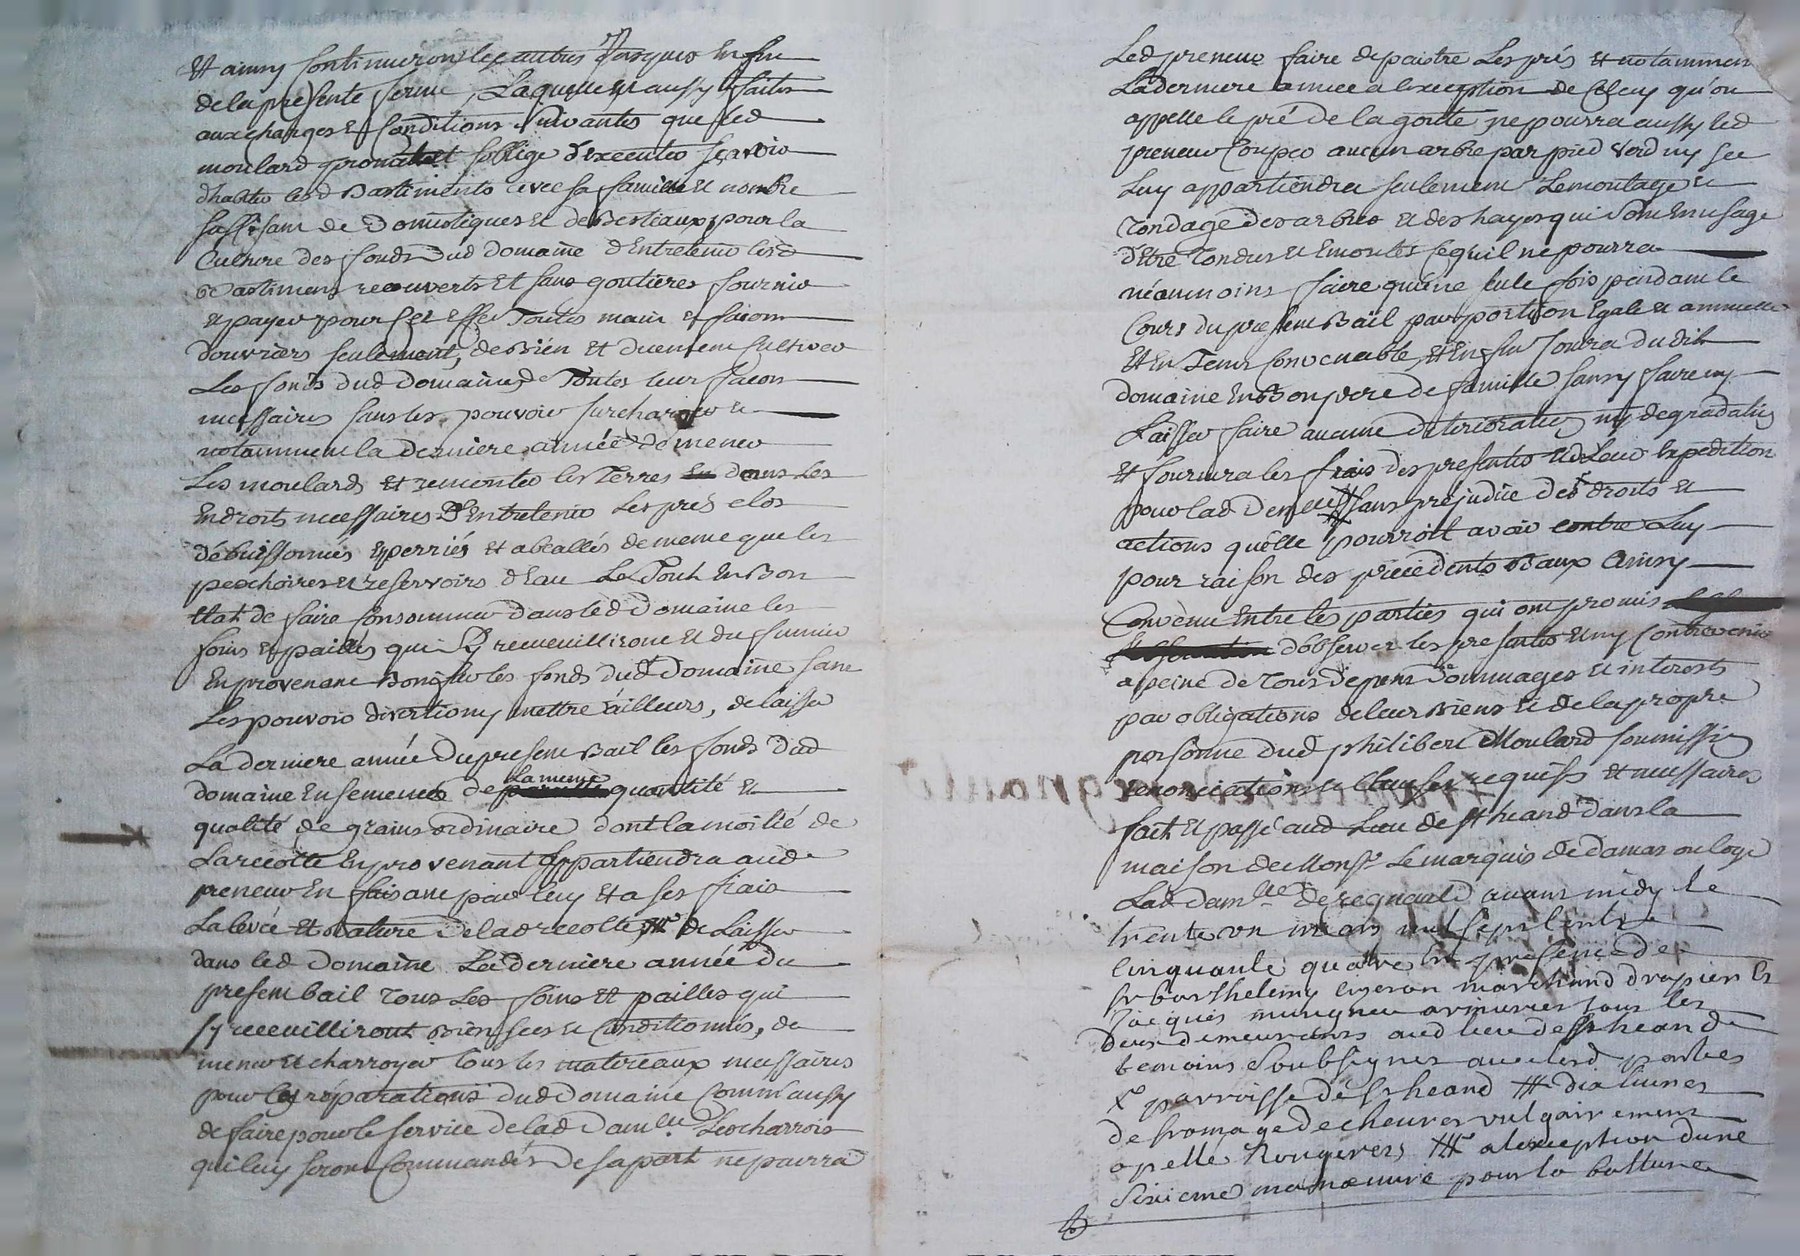 Et ainsy continueront les autres jusques en fin
de la presente ferme, Laquelle est aussy faitte
aux charges et Conditions suivantes que led
moulard promet et soblige d'executer scavoir
dhabiter lesd Bastiments avec sa famille et nombre
suffisant de Domestiques et de Bestiaux pour la
Culture des fonds dud domaine d'Entretenir lesd
Bastimens recouverts et sans goutieres fournir
et payer pour cet effet Toutes main et facon
douvriers seulement, de Bien et duement Cultiver
Les fonds dud domaine de Toutes leur facon
necessaires sans les pouvoir surcharger et
notamment la derniere année de mener
Les moulards et remonter les Terres dans Les
Endroits necessaires D'Entretenir Les prés clos
débuissonnés epperriés et abeallés de meme que les
peschoires et reservoirs d'Eau Le Tout En Bon
Etat de faire consommer dans led Domaine les
foins et pailles qui s'y recueuilliront et du fumier
En provenant sur les fonds dud Domaine sans
Les pouvoir divertir ny mettre ailleurs, de laisser
La derniere année du present Bail les fonds dud
domaine Ensemencés de la meme quantité et
qualité de grains ordinaire dont la moitié de
La recolte En provenant appartiendra aud
preneur En faisant par luy et a ses frais
La levée et de lad recolte de Laisser
dans led Domaine La derniere année du
present bail Tous Les foins et pailles qui
sy receuilliront Bien secs et Conditionnés, de
mener et charroyer tous les matereaux necessaires
pour les réparations dud Domaine Comm'aussy
de faire pour le service de lad Damlle Les charrois
qui luy seront Commandés de sa part ne pourra
Led preneur faire depaitre Les prés et notamment
La derniere annee a lexception de Celuy qu'on
appelle le pré de la goutte, ne pourra aussy led
preneur Couper aucun arbre par pied verd ny sec
Luy appartiendra seulement Lemontage et
Tondage des arbres et des hayes qui sont En usage
d'Etre Tondus et Emontés ce quil ne pourra
néanmoins faire qu'une seule fois pendant le
Cours du present Bail par portion Egale et annuelle
Et En Tems convenable, et En fin Jouira dudit
domaine En Bon pere de famille sans y faire ny
Laisser faire aucune deterioration ny degradation
et fournira les frais des presentes et de Leur Expedition
pour lad Demlle sans prejudice des droits et
actions quelle pourroit avoir contre Luy
pour raison des precedents Baux Ainsy
Convenu Entre les parties qui ont promis
d'observer les presentes et ny Contrevenir
a peine de Tous depens Dommages et interests
par obligations de leur Biens et de la propre
personne dud philibert Moulard soumissions
renonciations et Clauses requises et necessaires
fait et passé aud Lieu de st heand dans la
maison de Monsr Le marquis de damas ou loge
Lad Damlle de regnauld avant midy le
trente un mars mil sept cents
cinquante quatre En presence de
sr barthelemy marchand drapier Et
Jacques armurier tous les
Deux demeurants aud lieu de st heand
temoins soubsignes avec lesd parties
parroisse de st heand
de fromage de chevres vulgairement
apellé Rougerets a lexception d'une
sixieme manoeuvre pour la batture